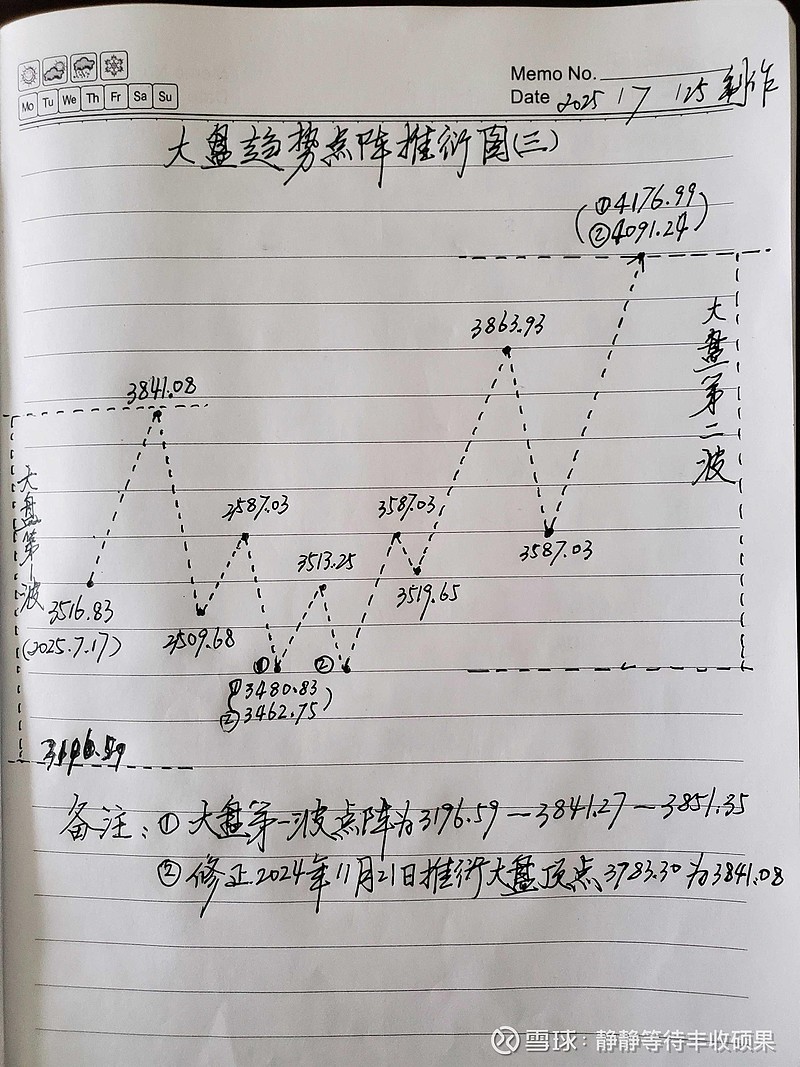 Memo No.
Mo Tu We Th Fr Sa Su
Date 2025 / 7 / 25 制作
大盘趋势点阵推衍图(三)
(①4176.99
②4091.24)
3863.93
3841.08
大盘第二波
大盘第一波
3587.03
3587.03
3587.03
3513.25
3519.65
3516.83
(2025.7.17)
3509.68
① ②
(①3480.83
②3462.75)
3196.59
备注:①大盘第一波点阵为3196.59—3841.27—3851.35
②修正2024年11月21日推衍大盘顶点3783.30为3841.08
雪球:静静等待丰收硕果